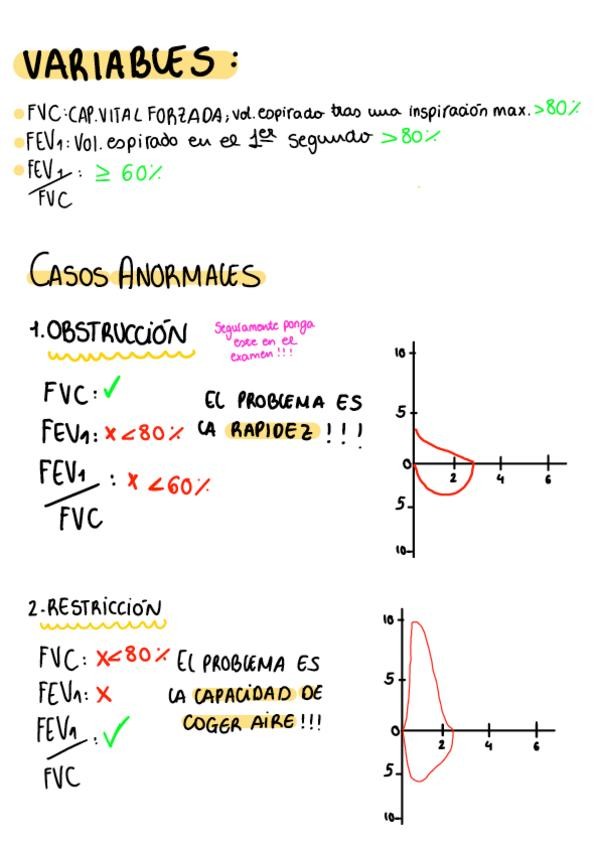 VARIABLES:
FVC: CAP. VITAL FORZADA; vol. espirado tras una inspiración max. >80%
FEV1: Vol. espirado en el 1er segundo >80%
FEV1/FVC: ≥ 60%
CASOS ANORMALES
1. OBSTRUCCIÓN
Seguramente ponga
este en el
examen!!!
FVC: ✓
FEV1: x <80%
FEV1/FVC: x <60%
EL PROBLEMA ES
LA RAPIDEZ!!!
10
5
0
5
10
2 4 6
2.-RESTRICCIÓN
FVC: x<80%
FEV1: x
FEV1/FVC: ✓
EL PROBLEMA ES
LA CAPACIDAD DE
COGER AIRE!!!
10
5
0
5
10
2 4 6